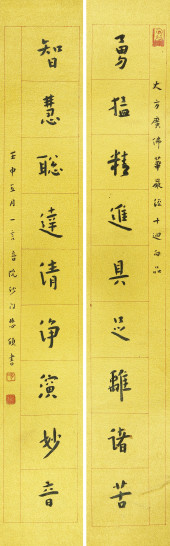 大方廣佛華嚴經十迴向品
勇猛精進具足離諸苦
智慧聰達清淨演妙音
壬申五月一言音院沙門書